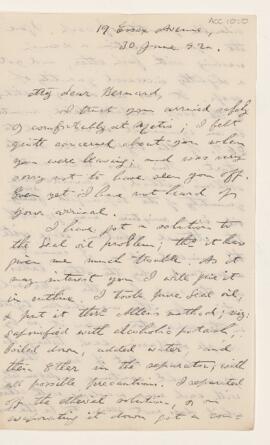 ACC 1020
19 Essex Avenue,
30 June 32.
My dear Bernard,
I trust you arrived safely
& comfortably at Metis; I felt
quite concerned about you when
you were leaving; and was very
sorry not to have seen you off.
Even yet I have not heard of
your arrival.
I have got a solution to
the Seal oil problem; tho it has
given me much trouble. As it
may interest you I will give it
in outline. I took pure Seal oil,
& put it thro Allen's method; viz:
saponified with alcoholic potash,
boiled down, added water and
then Ether in the separator; with
all possible precautions. I separated
off the etherial solution, & on
evaporating it down, got a